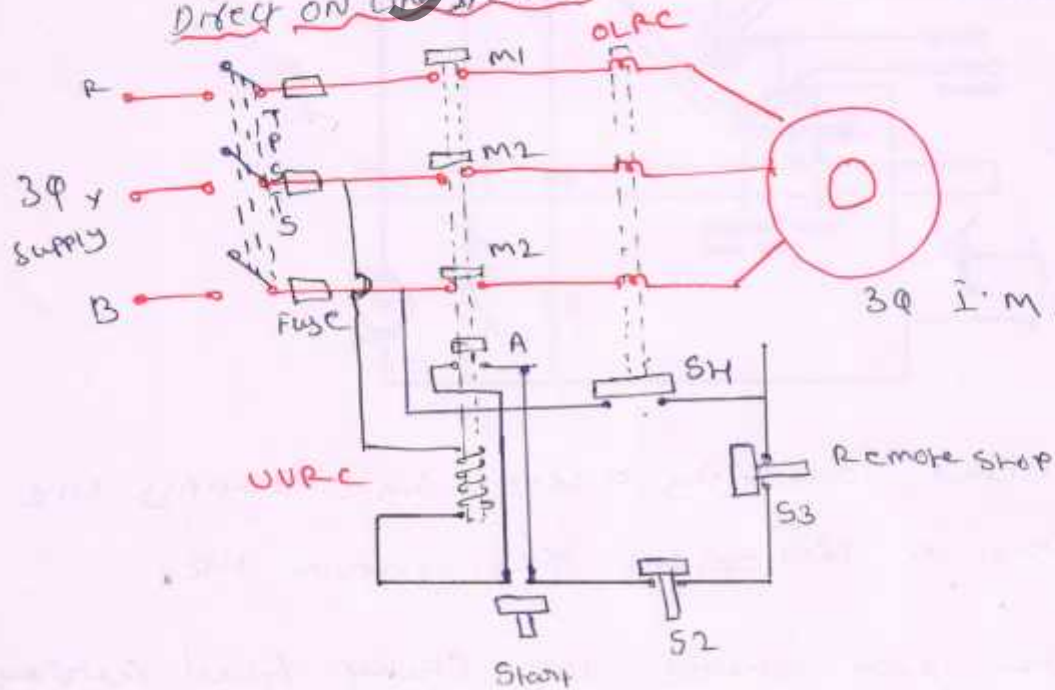 Direct ON Line
OLRC
M1
R
T
P
S
S
M2
3φ Y
Supply
M2
B
Fuse
3φ I.M
A
SH
UVRC
Remote Stop
S3
S2
Start